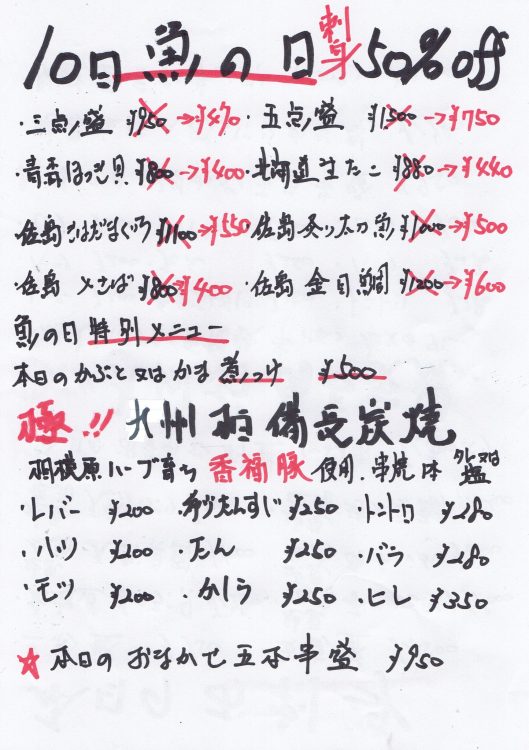 10日魚の日 刺身 50% off
・三点盛 ¥950→¥470 ・五点盛 ¥1500→¥750
・青森ほっき貝 ¥800→¥400 ・北海道生たこ ¥880→¥440
・佐島きはだまぐろ ¥1100→¥550 ・佐島炙り太刀魚 ¥1000→¥500
・佐島〆さば ¥800→¥400 ・佐島金目鯛 ¥1200→¥600
魚の日 特別メニュー
本日のかぶと又はかま 煮つけ ¥500
極!! 九州 備長炭焼
相模原ハーブ育ち 香福豚 使用.串焼1本 タレ又は塩
・レバー ¥200 ・ぶたすじ ¥250 ・トントロ ¥280
・ハツ ¥200 ・たん ¥250 ・バラ ¥280
・モツ ¥200 ・かしら ¥250 ・ヒレ ¥350
☆本日のおまかせ五本串盛 ¥950